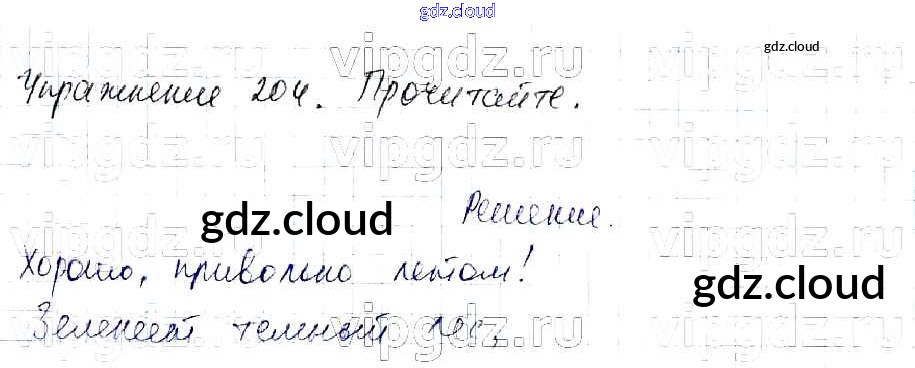 gdz.cloud
gdz.cloud
vipgdz.ru vipgdz.ru
Упражнение 204. Прочитайте.
vipgdz.ru vipgdz.ru
Решение.
gdz.cloud
vipgdz.ru vipgdz.ru
Хорошо, привольно летом!
gdz.cloud
Зеленеет темный лес,
vipgdz.ru vipgdz.ru